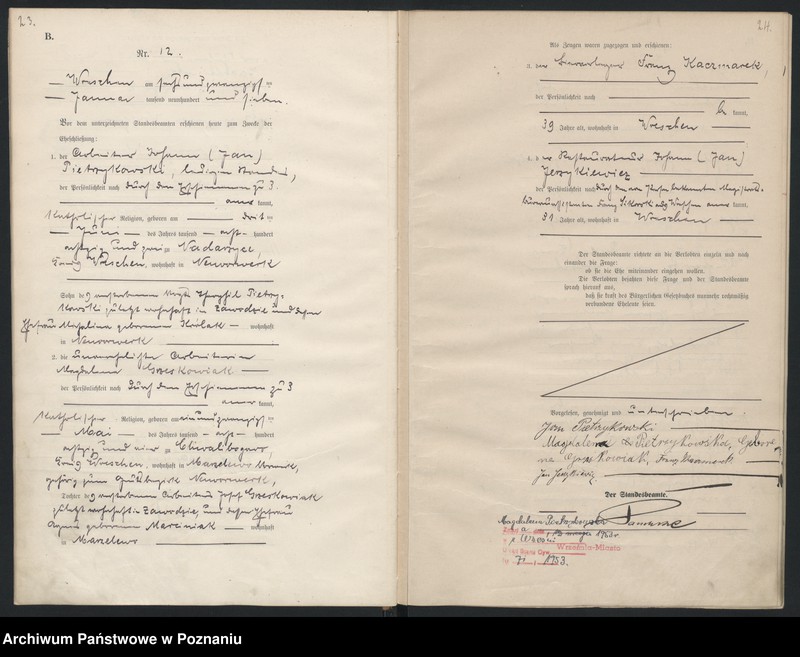 23.
B.
Nr. 12.
Wreschen am fünfundzwanzigsten
Januar tausend neunhundert und sieben.
Vor dem unterzeichneten Standesbeamten erschienen heute zum Zwecke der
Eheschließung:
1. der Arbeiter Johann (Jan)
Pietrzykowski, ledigen Standes,
der Persönlichkeit nach durch den zu 3
kannt,
katholischer Religion, geboren am
Juni des Jahres tausend acht hundert
achtzig und zwei zu Nadarzyce,
Kreis Wreschen, wohnhaft in Neuvorwerk
Sohn des verstorbenen Pietrzy-
kowski, zuletzt wohnhaft in Zawodzie und dessen
Ehefrau Michalina geborenen Królak wohnhaft
in Neuvorwerk
2. die unverehelichte Arbeiterin
Magdalena Grzeskowiak
der Persönlichkeit nach durch den zu 3
kannt,
katholischer Religion, geboren am einundzwanzigsten
Mai des Jahres tausend acht hundert
achtzig und eins zu Chwalibogowo,
Kreis Wreschen, wohnhaft in Marzelewo
gehörig zum Gutsbezirk Neuvorwerk,
Tochter des verstorbenen Arbeiters Josef Grzeskowiak
zuletzt wohnhaft in Zawodzie, und dessen Ehefrau
geborenen Marciniak wohnhaft
in Marzelewo
24.
Als Zeugen waren zugezogen und erschienen:
3. der Franz Kaczmarek,
der Persönlichkeit nach
kannt,
39 Jahre alt, wohnhaft in Wreschen
4. der Restaurateur Johann (Jan)
Jerzykiewicz
der Persönlichkeit nach durch den
Sikorski aus Wreschen kannt,
31 Jahre alt, wohnhaft in Wreschen
Der Standesbeamte richtete an die Verlobten einzeln und nach
einander die Frage:
ob sie die Ehe miteinander eingehen wollen.
Die Verlobten bejahten diese Frage und der Standesbeamte
sprach hierauf aus,
daß sie kraft des Bürgerlichen Gesetzbuches nunmehr rechtmäßig
verbundene Eheleute seien.
Vorgelesen, genehmigt und unterschrieben
Jan Pietrzykowski
Magdalena Pietrzykowska, gebore-
ne Grzeskowiak, Franz Kaczmarek
Jan Jerzykiewicz
Der Standesbeamte.
Magdalena
1953 r.
Września-Miasto
Urząd Stanu Cyw.
1953.
Archiwum Państwowe w Poznaniu